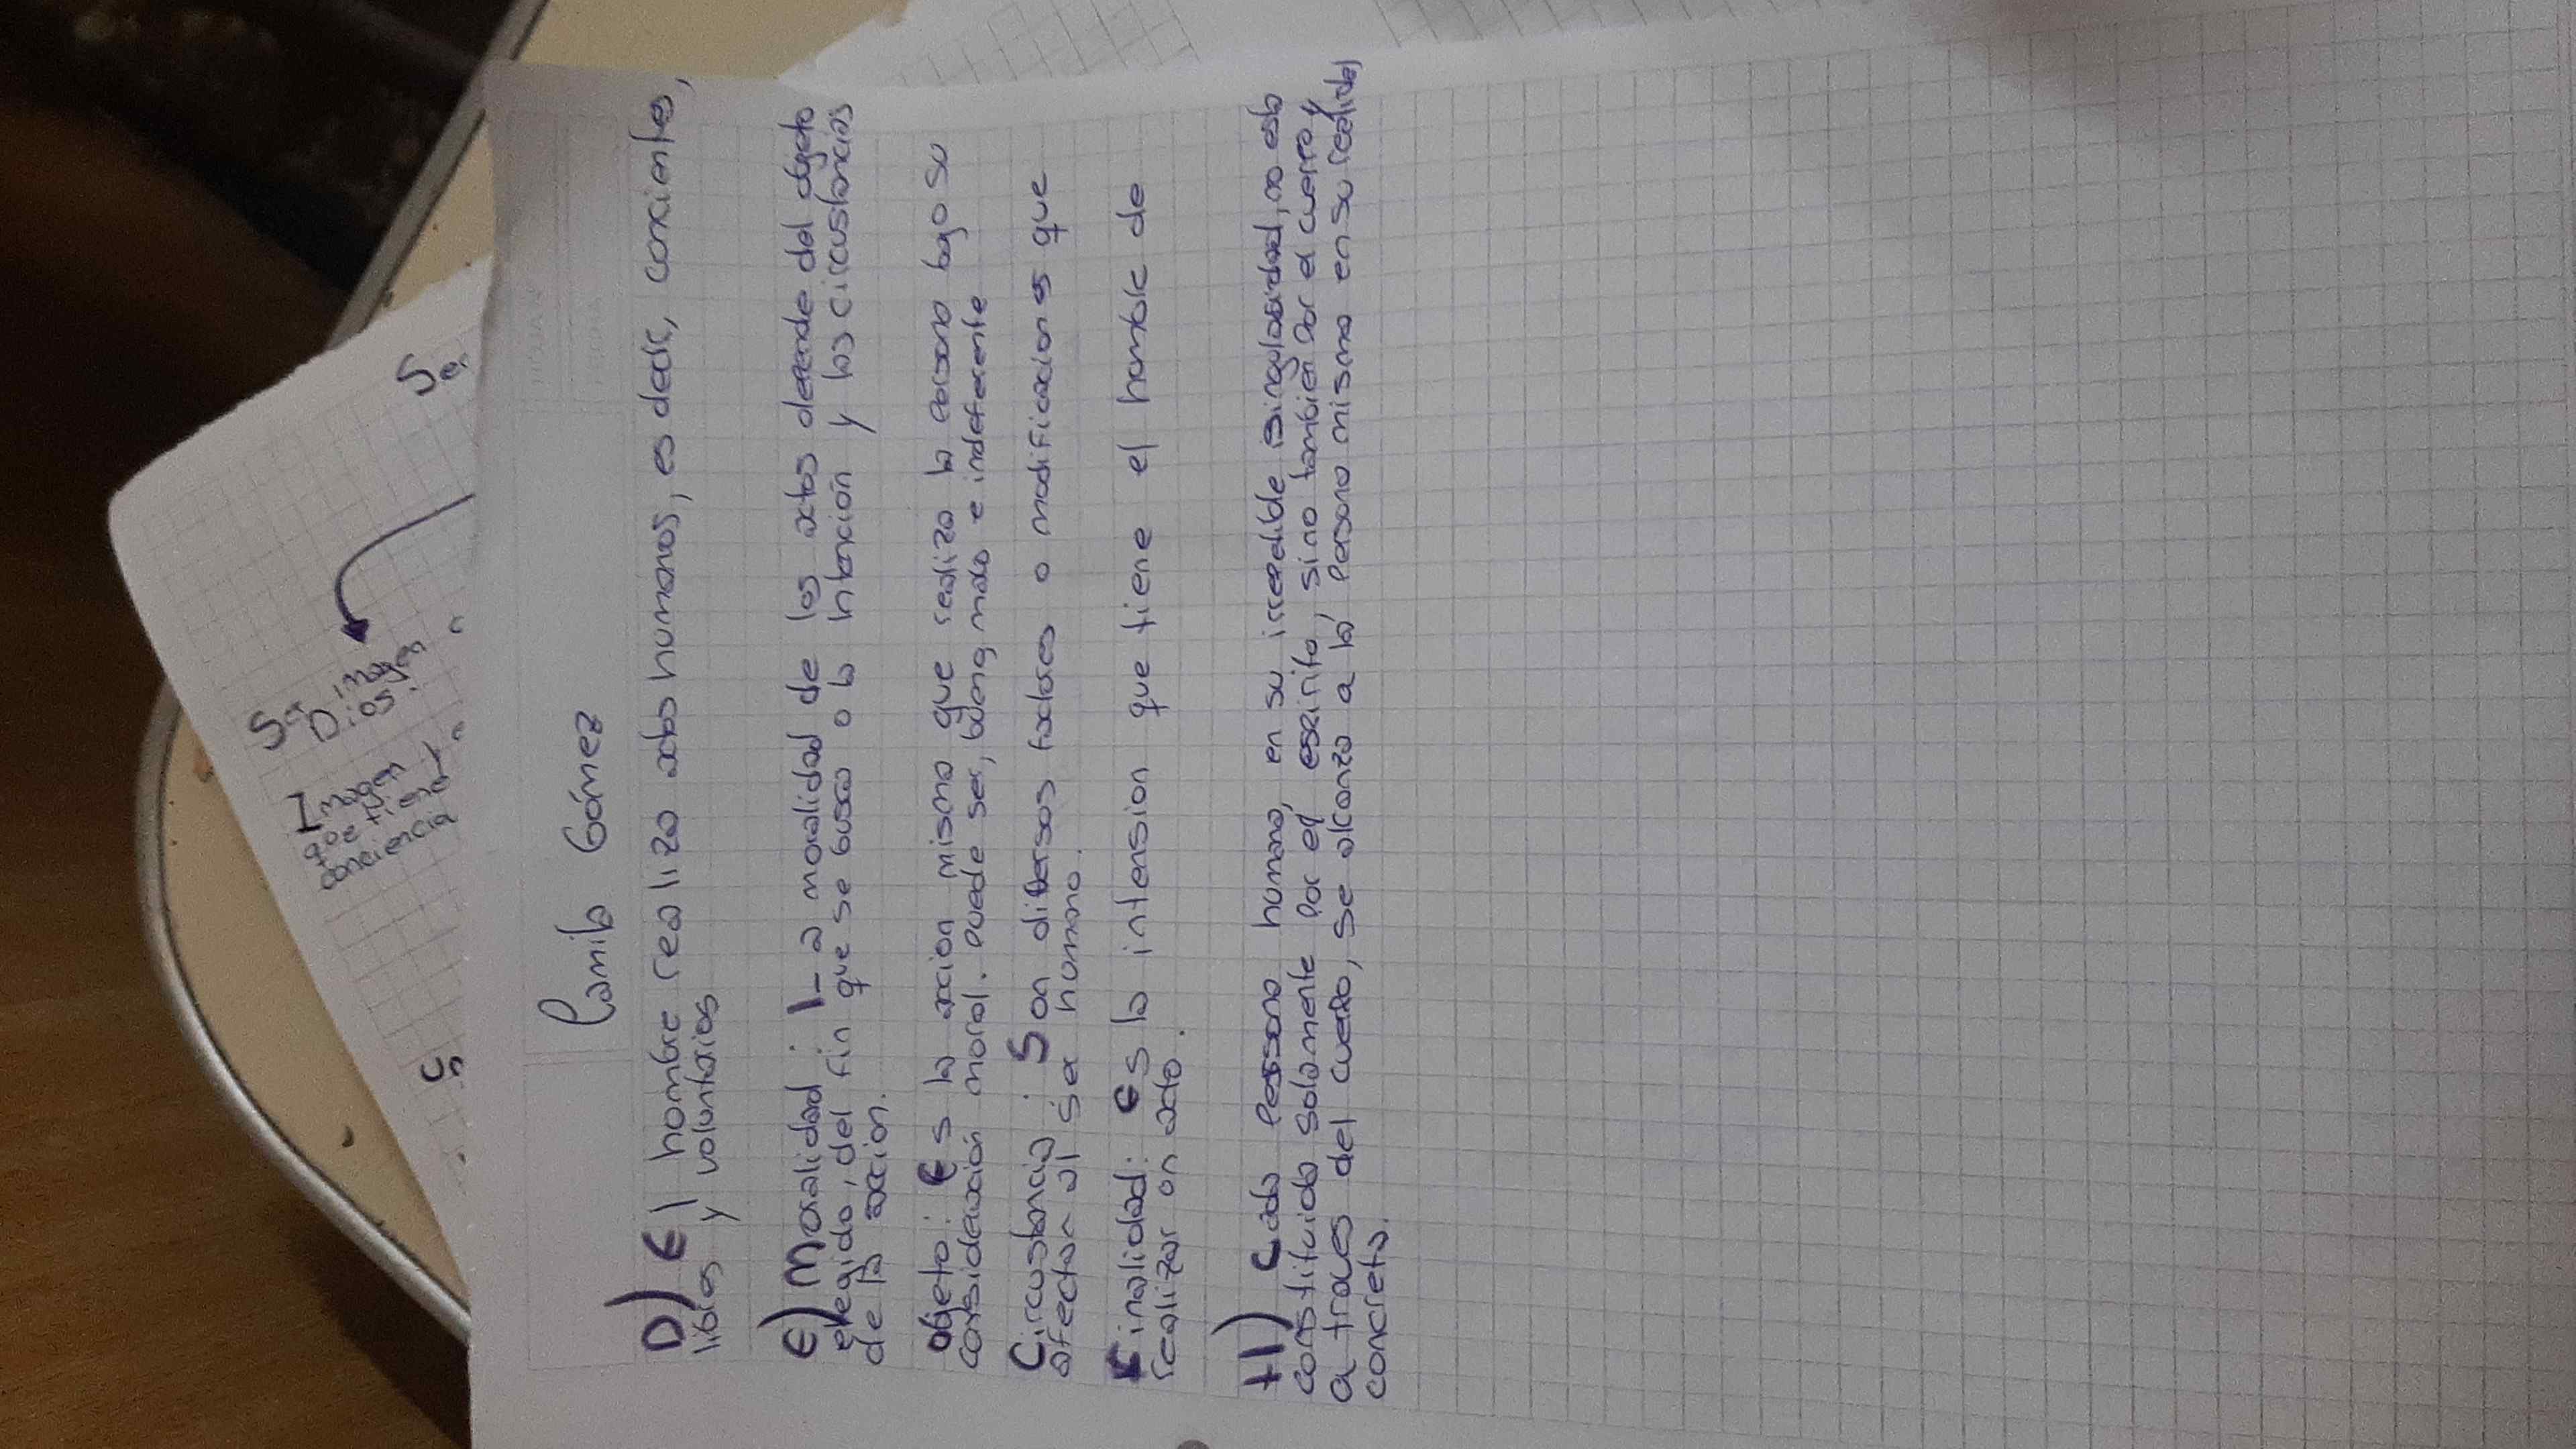 Camila Gómez
D) El hombre realiza actos humanos, es decir, concientes,
libres y voluntarios
E) Moralidad: La moralidad de los actos depende del objeto
elegido, del fin que se busca o la intención y las circustancias
de la accion.
Objeto: Es la accion misma que realiza la persona bajo su
consideración moral. Puede ser, buena, mala e indeferente
Circustancia: Son diversos factores o modificaciones que
afectan al ser humano.
Finalidad: Es la intension que tiene el hombre de
realizar un acto.
H) Cada persona humana, en su irrepedible singularidad, no esta
constituida solamente por el espiritu, sino también por el cuerpo y
a traves del cuerpo, se alcanza a la persona misma en su realidad
concreta.
Ser imagen
Dios:
Imagen
que tiene
conciencia
Ser